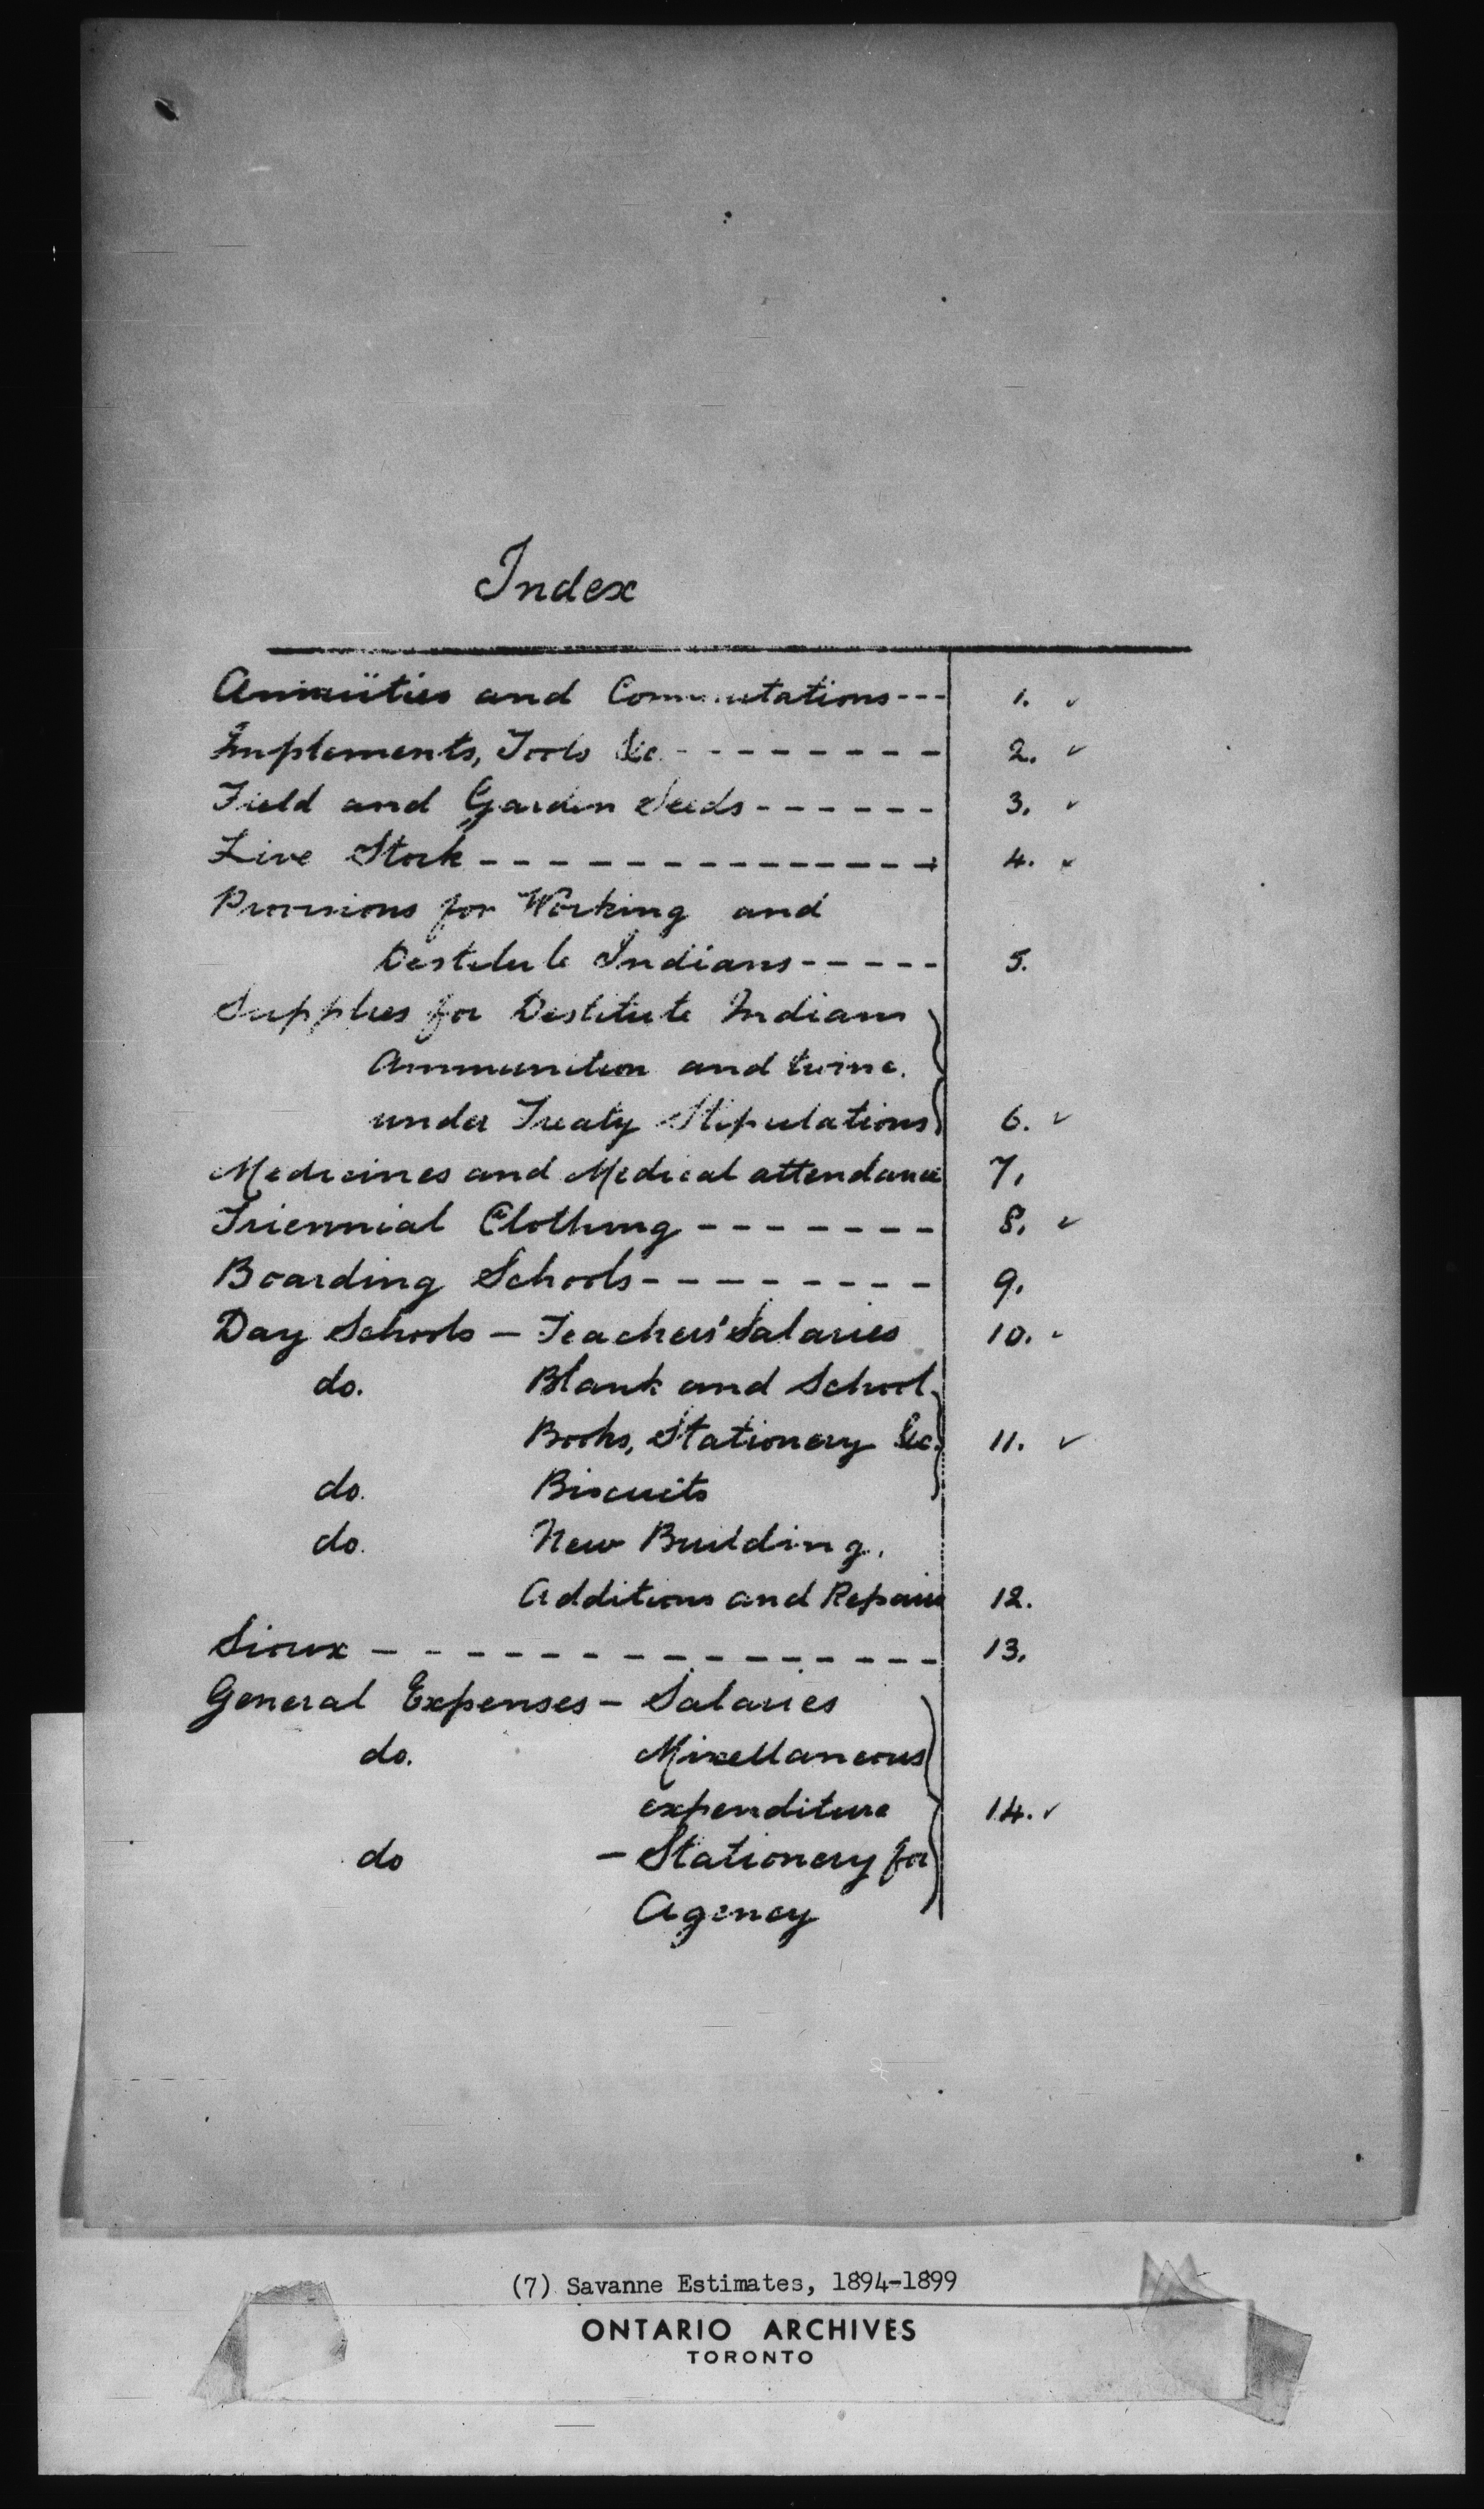 Index
Annuities and Commutations --- 1. ✓
Implements, Tools &c. - - - - - - - - 2. ✓
Field and Garden Seeds - - - - - - 3. ✓
Live Stock - - - - - - - - - - - - - - - 4. ✓
Provisions for Working and
Destitute Indians - - - - - 5.
Supplies for Destitute Indians
Ammunition and twine.
under Treaty Stipulations 6. ✓
Medicines and Medical attendance 7.
Triennial Clothing - - - - - - - 8. ✓
Boarding Schools - - - - - - - - 9.
Day Schools – Teachers' Salaries 10. ✓
do. Blank and School
Books, Stationery &c. 11. ✓
do. Biscuits
do. New Building,
Additions and Repairs 12.
Sioux - - - - - - - - - - - - - - - 13.
General Expenses – Salaries
do. Miscellaneous
expenditure 14. ✓
do – Stationery for
Agency
(7) Savanne Estimates, 1894-1899
ONTARIO ARCHIVES
TORONTO